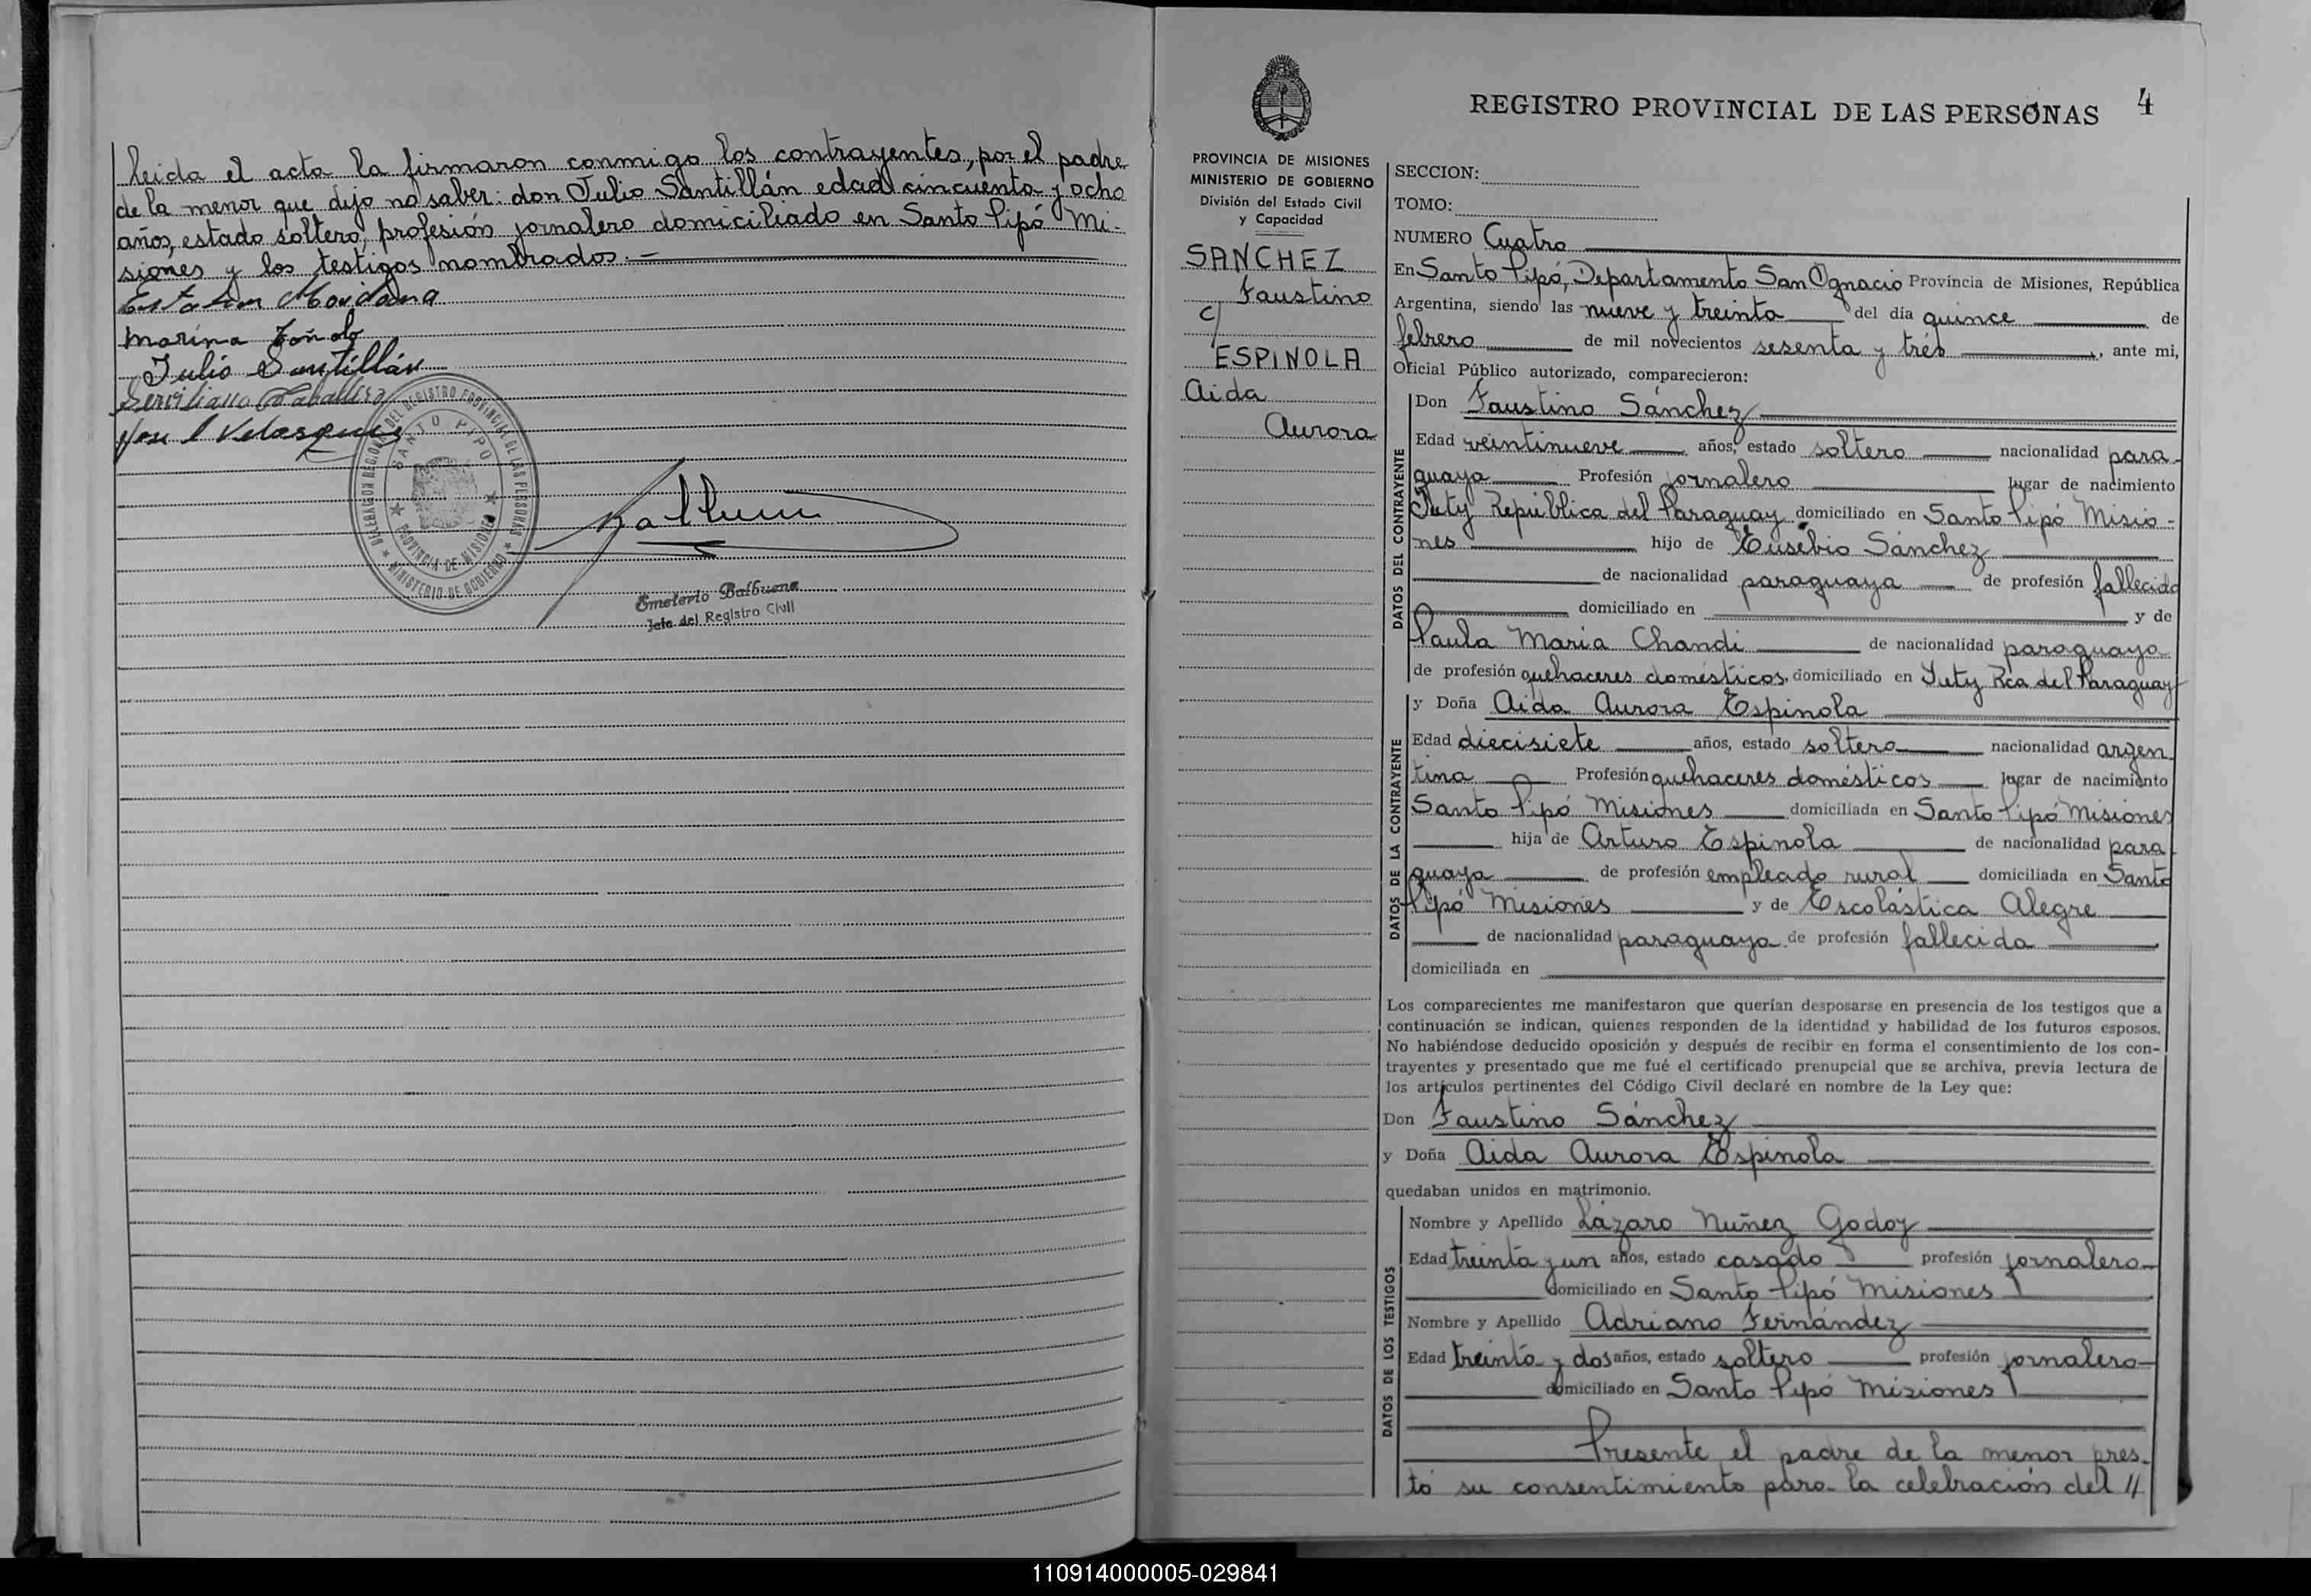 leida el acta la firmaron conmigo los contrayentes, por el padre
de la menor que dijo no saber: don Julio Santillán edad cincuenta y ocho
años, estado soltero, profesión jornalero domiciliado en Santo Pipó Mi-
siones y los testigos nombrados.—
Marina
Julio Santillán
Serviliano Caballero
José Velasquez
DELEGACION REGIONAL DEL REGISTRO PROVINCIAL DE LAS PERSONAS
SANTO PIPO
PROVINCIA DE MISIONES
MINISTERIO DE GOBIERNO
Emeterio Balbuena
Jefe del Registro Civil
REGISTRO PROVINCIAL DE LAS PERSONAS 4
PROVINCIA DE MISIONES
MINISTERIO DE GOBIERNO
División del Estado Civil
y Capacidad
SANCHEZ
Faustino
c/
ESPINOLA
Aida
Aurora
SECCION:
TOMO:
NUMERO Cuatro
En Santo Pipó, Departamento San Ignacio Provincia de Misiones, República
Argentina, siendo las nueve y treinta del día quince de
febrero de mil novecientos sesenta y trés, ante mi,
Oficial Público autorizado, comparecieron:
DATOS DEL CONTRAYENTE
Don Faustino Sánchez
Edad veintinueve años, estado soltero nacionalidad para-
guaya Profesión jornalero lugar de nacimiento
Yuty República del Paraguay domiciliado en Santo Pipó Misio-
nes hijo de Eusebio Sánchez
de nacionalidad paraguaya de profesión fallecido
domiciliado en y de
Paula Maria Chandi de nacionalidad paraguaya
de profesión quehaceres domésticos, domiciliado en Yuty Rca del Paraguay
DATOS DE LA CONTRAYENTE
y Doña Aida Aurora Espinola
Edad diecisiete años, estado soltera nacionalidad argen
tina Profesión quehaceres domésticos lugar de nacimiento
Santo Pipó Misiones domiciliada en Santo Pipó Misiones
hija de Arturo Espinola de nacionalidad para
guaya de profesión empleado rural domiciliada en Santo
Pipó Misiones y de Escolástica Alegre
de nacionalidad paraguaya de profesión fallecida
domiciliada en
Los comparecientes me manifestaron que querían desposarse en presencia de los testigos que a
continuación se indican, quienes responden de la identidad y habilidad de los futuros esposos.
No habiéndose deducido oposición y después de recibir en forma el consentimiento de los con-
trayentes y presentado que me fué el certificado prenupcial que se archiva, previa lectura de
los artículos pertinentes del Código Civil declaré en nombre de la Ley que:
Don Faustino Sánchez
y Doña Aida Aurora Espinola
quedaban unidos en matrimonio.
DATOS DE LOS TESTIGOS
Nombre y Apellido Lázaro Nuñez Godoy
Edad treinta y un años, estado casado profesión jornalero
domiciliado en Santo Pipó Misiones
Nombre y Apellido Adriano Fernández
Edad treinta y dos años, estado soltero profesión jornalero
domiciliado en Santo Pipó Misiones
Presente el padre de la menor pres-
tó su consentimiento para la celebración del //
110914000005-029841